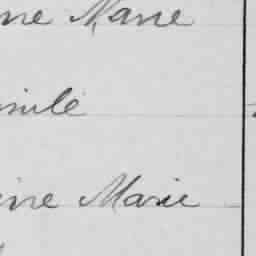 ne Marie
mile
ine Marie